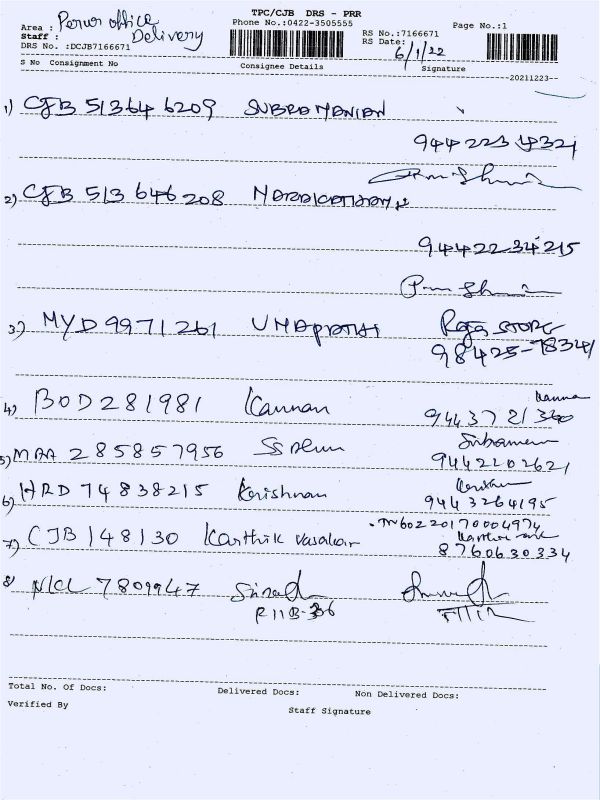 TPC/CJB DRS - PRR
Area : Perur office Phone No.:0422-3505555 Page No.:1
Staff : Delivery RS No.:7166671
DRS No. :DCJB7166671 RS Date: 6/1/22
S No Consignment No Consignee Details Signature
--20211223--
1) CJB 513646209 SUBRAMANIAN
9442234321
2) CJB 513 646 208
9442234215
3) MYD 9971261 Raja STORE
98425-78341
4) BOD 281981 Kannan Kanna
94437 21 340
5) MAA 285857956
9442202621
6) HRD 74838215 Krishnan
9443264195
TN60220170004974
7) CJB 148130 Karthik
8760630334
8) 7809947
Total No. Of Docs: Delivered Docs: Non Delivered Docs:
Verified By Staff Signature